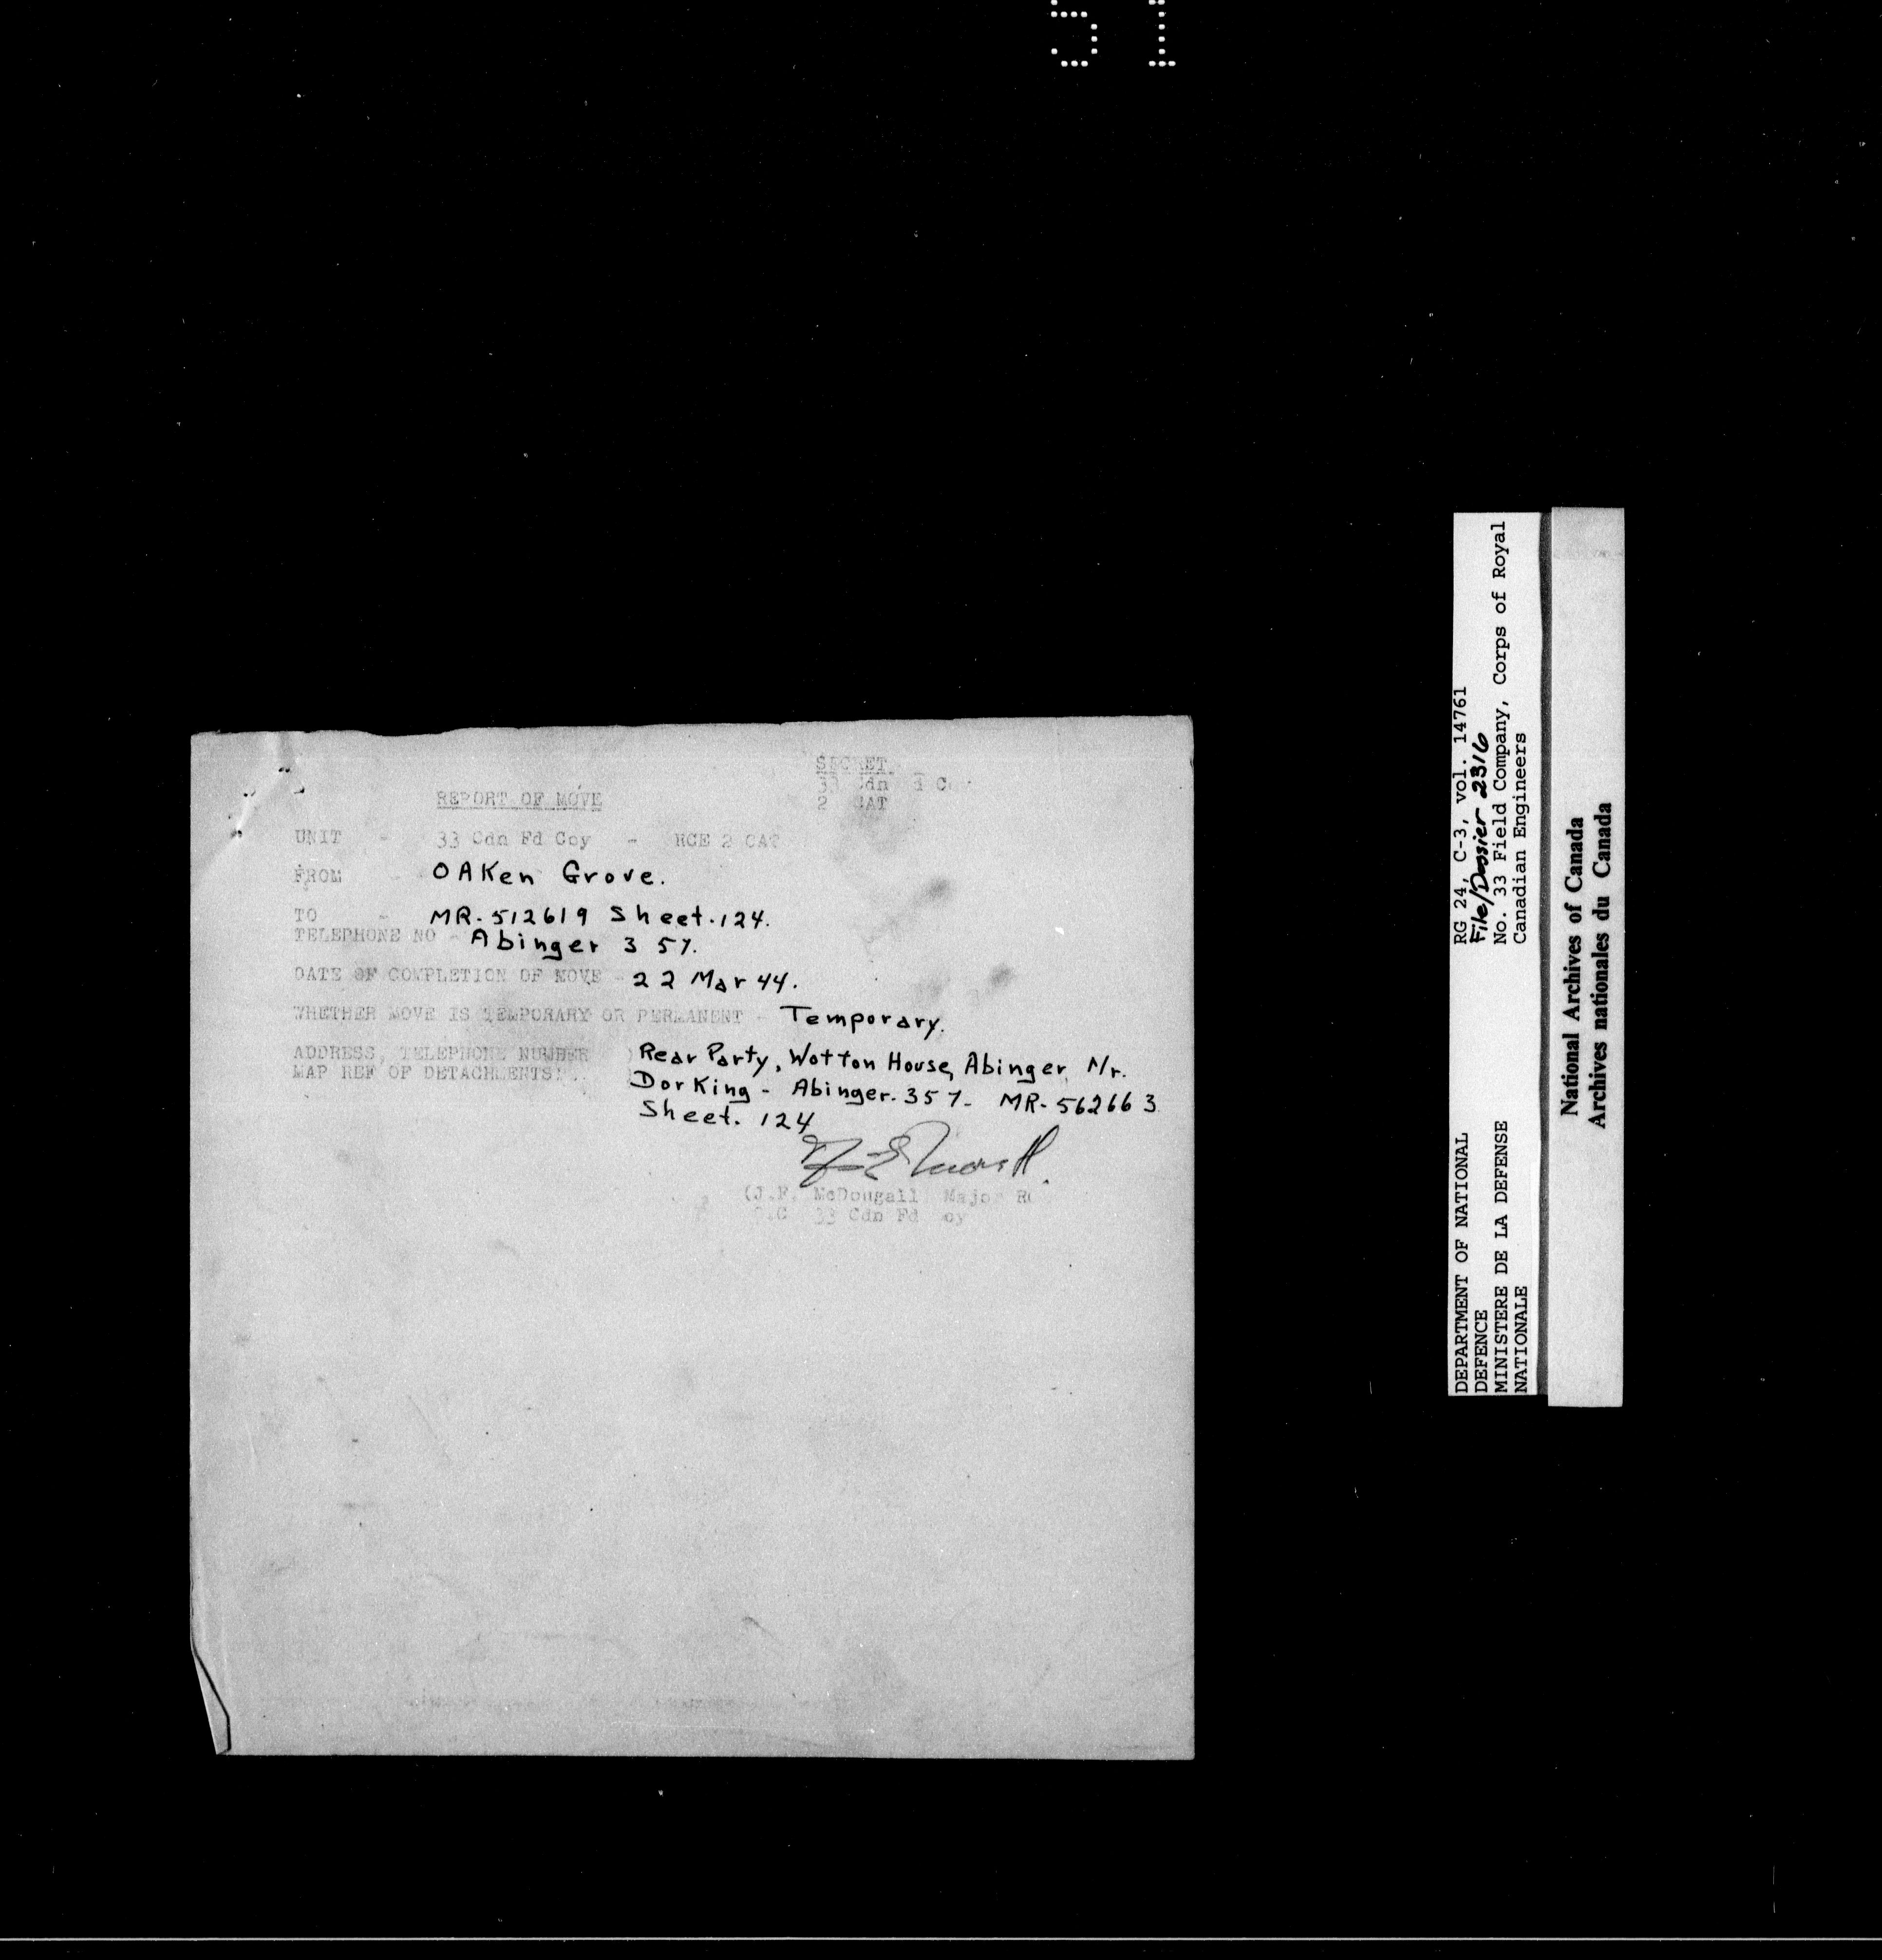 51
SECRET
33 Cdn
2 CAT
REPORT OF MOVE
UNIT - 33 Cdn Fd Coy - RCE 2 CAT
FROM - OAKen Grove.
TO - MR. 512619 Sheet. 124.
TELEPHONE NO - Abinger 357.
DATE OF COMPLETION OF MOVE - 22 Mar 44.
WHETHER MOVE IS TEMPORARY OR PERMANENT - Temporary.
ADDRESS, TELEPHONE NUMBER ) Rear Party, Wotton House, Abinger Nr.
MAP REF OF DETACHMENTS: Dorking - Abinger. 357- MR- 562663
Sheet. 124
(J.F. McDougall) Major
O.C 33 Cdn Fd
RG 24, C-3, vol. 14761
File/Dossier 2316
No. 33 Field Company, Corps of Royal
Canadian Engineers
DEPARTMENT OF NATIONAL
DEFENCE
MINISTERE DE LA DEFENSE
NATIONALE
National Archives of Canada
Archives nationales du Canada